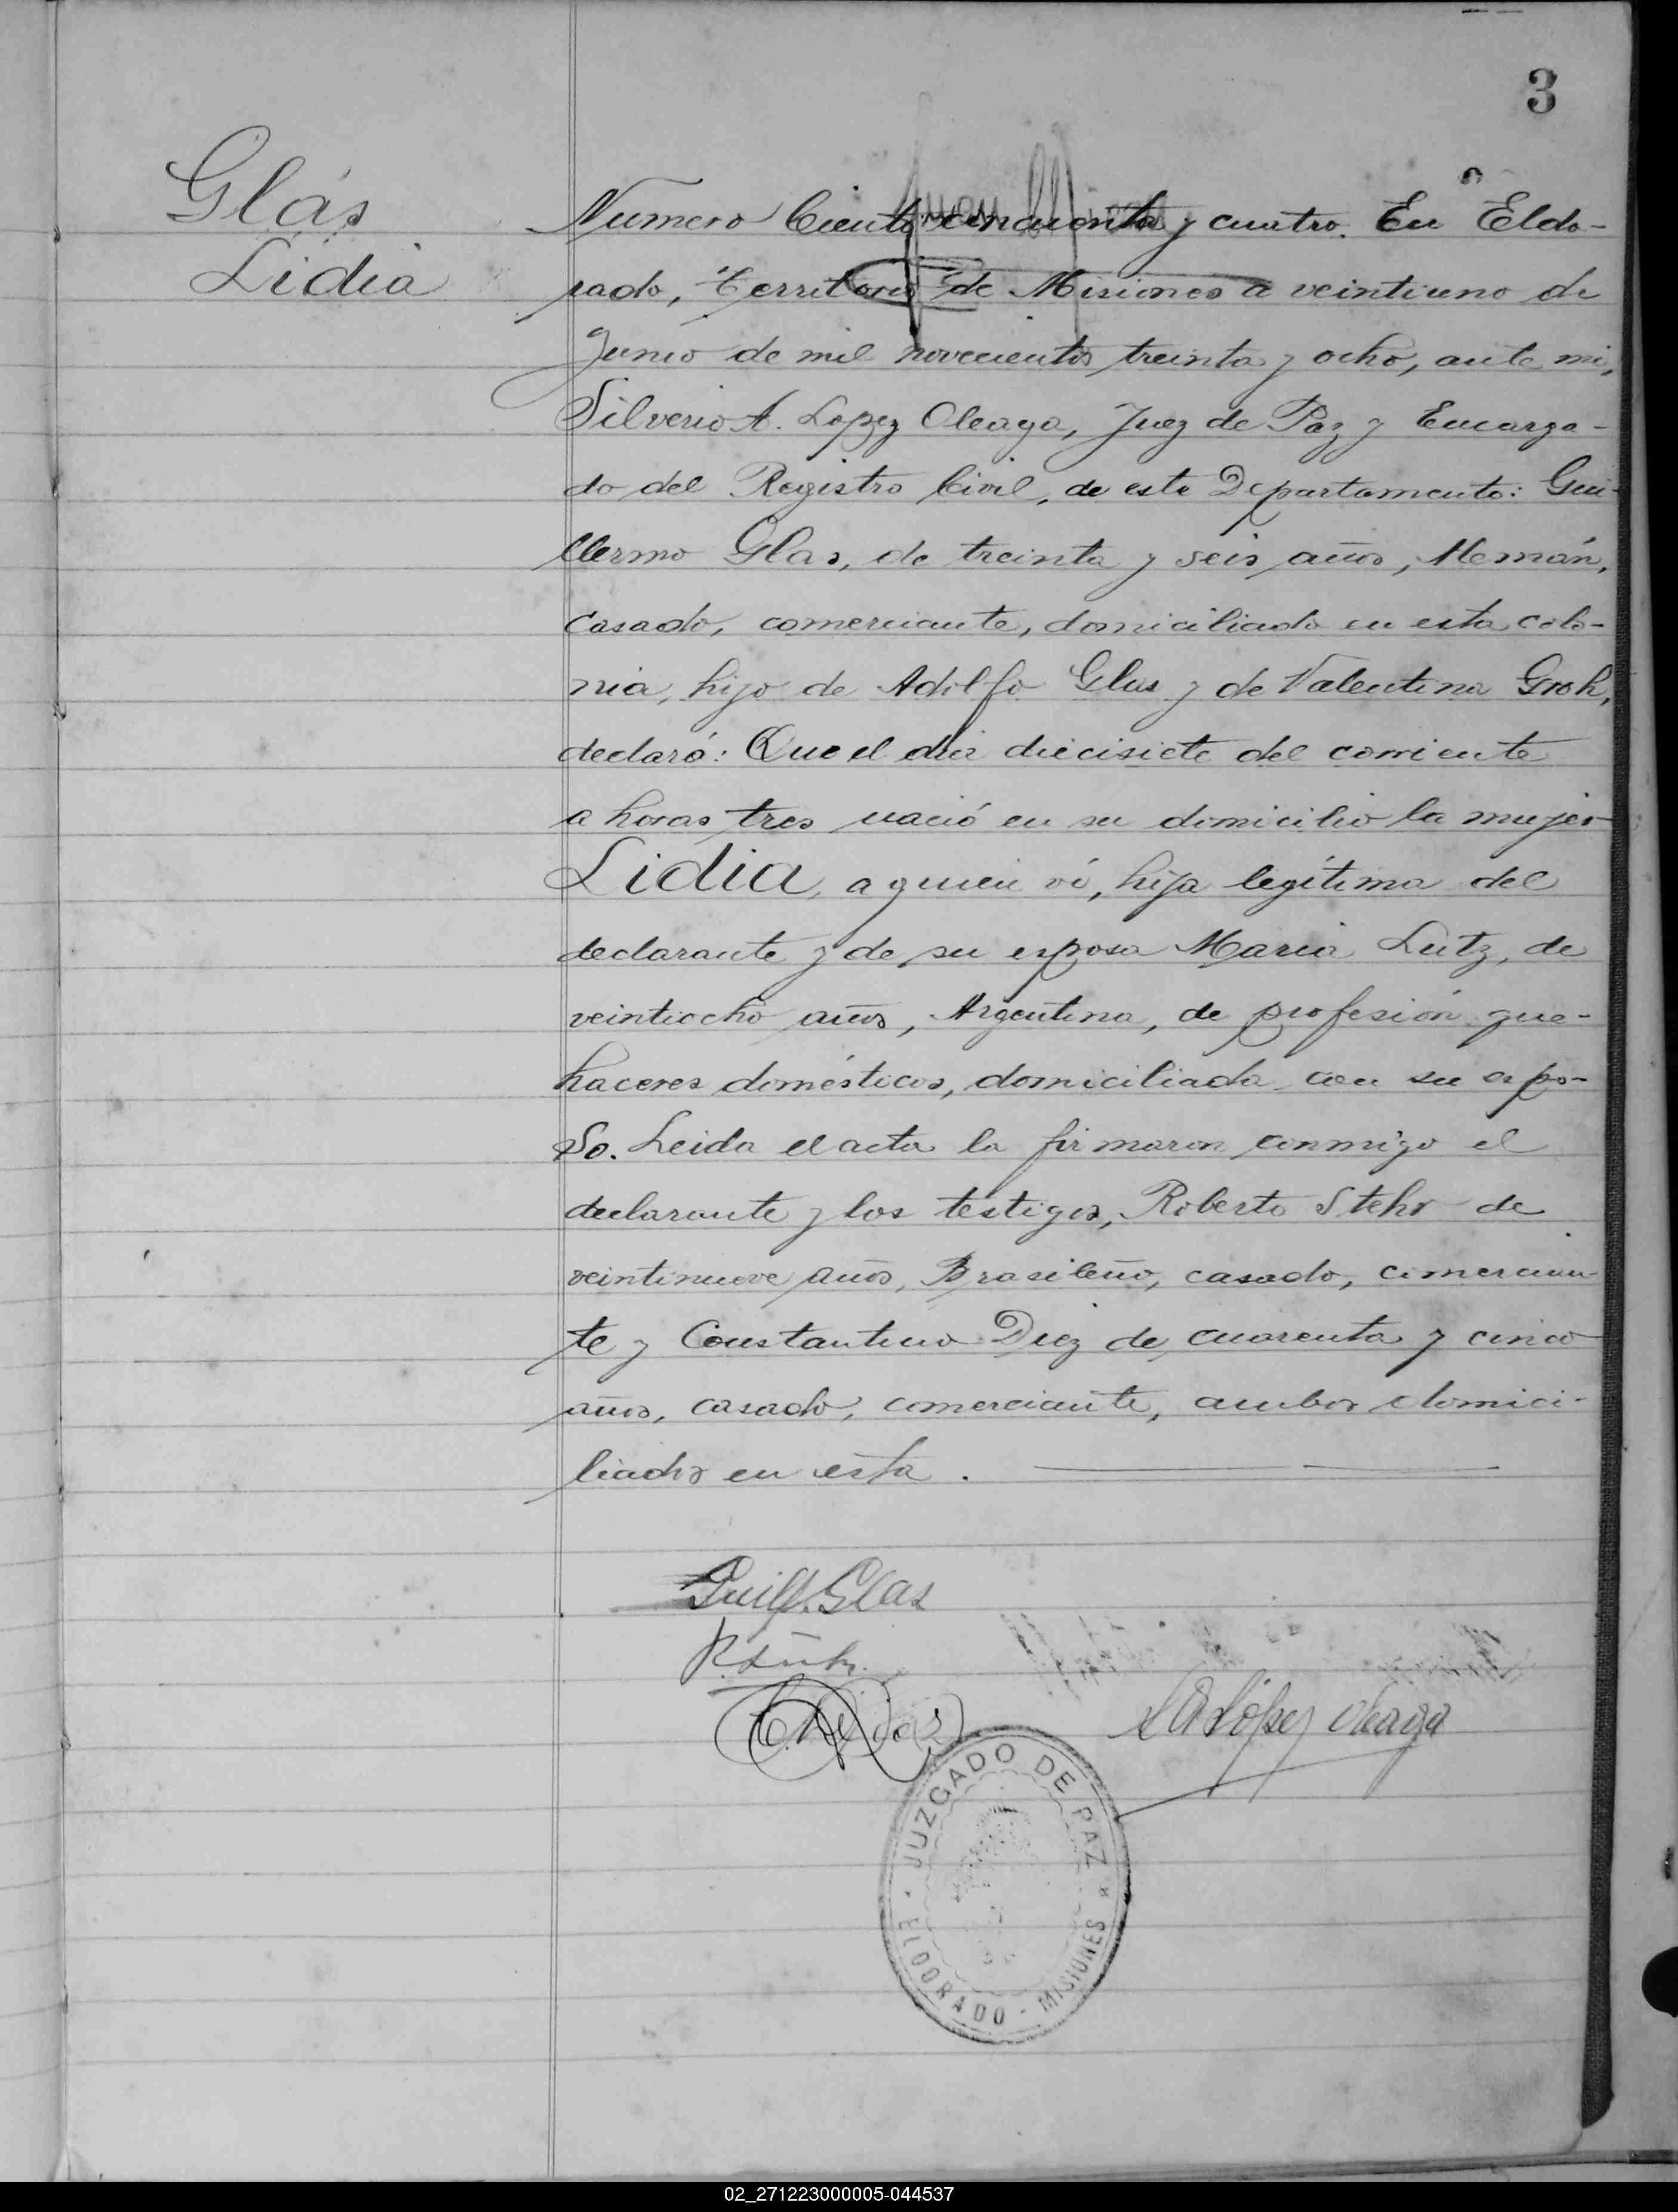 3
Glas
Lidia
Numero Ciento cincuenta y cuatro. En Eldo-
rado, Territorio de Misiones a veintiuno de
Junio de mil novecientos treinta y ocho, ante mi,
Silverio A. Lopez Oleaga, Juez de Paz y Encarga-
do del Registro Civil, de este Departamento: Gui-
llermo Glas, de treinta y seis años, Alemán,
casado, comerciante, domiciliado en esta colo-
nia, hijo de Adolfo Glas y de Valentina Groh,
declaró: Que el dia diecisiete del corriente
a horas tres nació en su domicilio la mujer
Lidia, a quien ví, hija legítima del
declarante y de su esposa Maria Lutz, de
veintiocho años, Argentina, de profesión que-
haceres domésticos, domiciliada con su espo-
so. Leida el acta la firmaron conmigo el
declarante y los testigos, Roberto Stehr de
veintinueve años, Brasileño, casado, comercian
te y Constantino Diez de cuarenta y cinco
años, casado, comerciante, ambos domici-
liados en esta.
Guill. Glas
S A López Oleaga
JUZGADO DE PAZ
ELDORADO - MISIONES
02_271223000005-044537